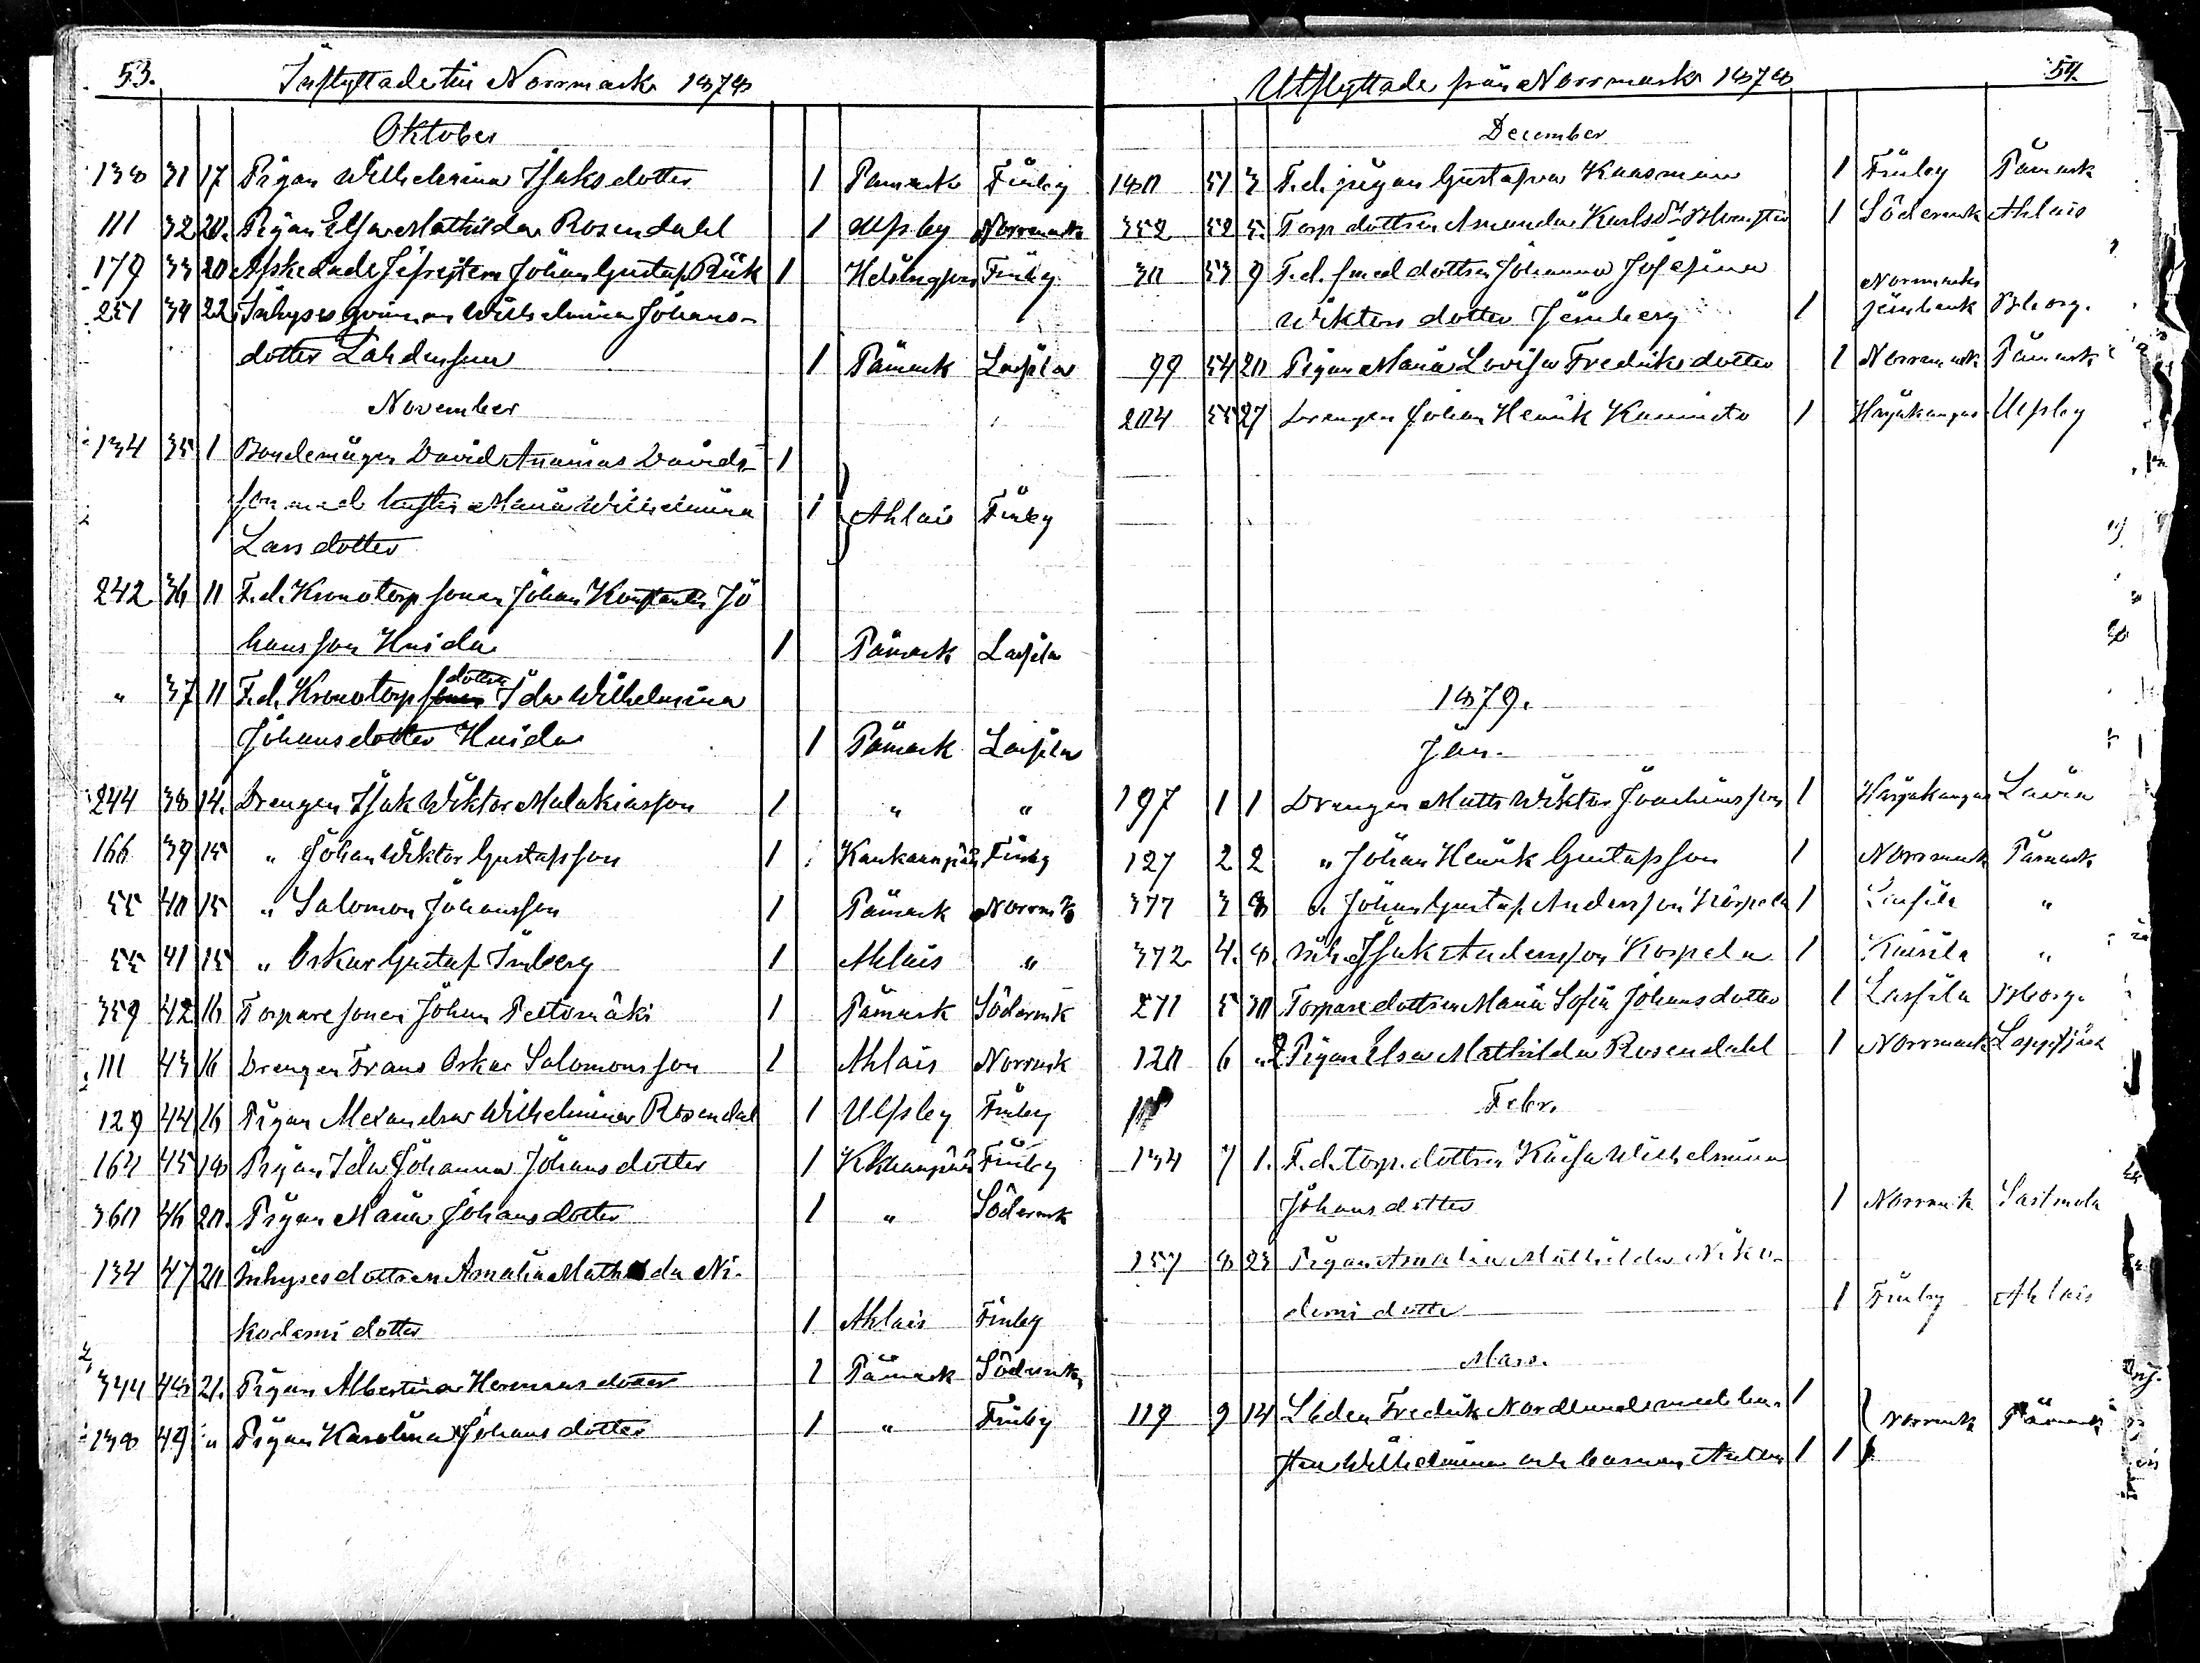 53. Inflyttade till Norrmark 1878
Oktober
138 31 17 Pigan Wilhelmina Isaksdotter 1 Påmark Finby
111 32 20. Pigan Elsa Mathilda Rosendahl 1 Ulfsby Norrmark
179 33 20 Afskedade Johan Gustaf Rük 1 Helsingfors Finby
251 34 22 Inhyses qvinnan Wilhelmina Johans-
dotter 1 Påmark Lassila
November
134 35 1 Bondemågen David Ananias Davids- 1
son med hustru Maria Wilhelmina 1 Ahlais Finby
Larsdotter
242 36 11 F.d. Kronotorp sonen Johan Konstantin Jo
hansson Huida 1 Påmark Lassila
" 37 11 F.d. Kronotorp dottren Ida Wilhelmina
Johansdotter Huida 1 Påmark Lassila
244 38 14. Drengen Isak Wiktor Malakiasson 1 " "
166 39 15 " Johan Wiktor Gustafsson 1 Kankaanpää Finby
55 40 15 " Salomon Johansson 1 Påmark Norrmk
55 41 15 " Oskar Gustaf Inberg 1 Ahlais "
359 42 16 Torparesonen Johan Peltomäki 1 Påmark Södermk
111 43 16 Drengen Frans Oskar Salomonsson 1 Ahlais Norrmk
129 44 16 Pigan Alexandra Wilhelmina Rosendal 1 Ulfsby Finby
45 18 Pigan Ida Johanna Johansdotter 1 Finby
360 46 20. Pigan Maria Johansdotter 1 " Södermk
134 47 20 Inhysesdottren Amalia Mathilda Ni-
kodemidotter 1 Ahlais Finby
344 48 21. Pigan Albertina Hermansdotter 1 Påmark Södermk
138 49 " Pigan Karolina Johansdotter 1 " Finby
Utflyttade från Norrmark 1878 54.
December
180 51 3 F.d. pigan Gustafva Kaasman 1 Finby Påmark
352 52 5. Torp dottren Amanda Karlsdr 1 Södermk Ahlais
30 53 9 F.d. smed dottren Johanna Josefina Norrmarks
Wiktorsdotter Jernberg 1 Jernbruk Bborg.
99 54 20 Pigan Maria Lovisa Fredriksdotter 1 Norrmark Påmark
204 55 27 Drengen Johan Henrik Kaunisto 1 Harjakangas Ulfsby
1879.
Jan.
197 1 1 Drengen Matts Wiktor Joachimsson 1 Harjakangas Lavia
127 2 2 " Johan Henrik Gustafsson 1 Norrmark Påmark
377 3 8 " Johan Gustaf Andersson Korpela 1 "
372 4. 8. Inh. Isak Andersson Korpela 1 "
271 5 30 Torparedottren Maria Sofia Johansdotter 1 Lassila Bborg.
120 6 Pigan Elsa Mathilda Rosendahl 1 Norrmark Lappfjärd
Febr.
134 7 1. F.d. torp. dottren Kaisa Wilhelmina
Johansdotter 1 Norrmk Sastmola
157 8 23 Pigan Amalia Mathilda Niko-
demidotter 1 Finby Ahlais
Mars.
119 9 14 Fredrik Nordlund med hu- 1 Norrmk Påmark
strun Wilhelmina och barnen Anton 1 1